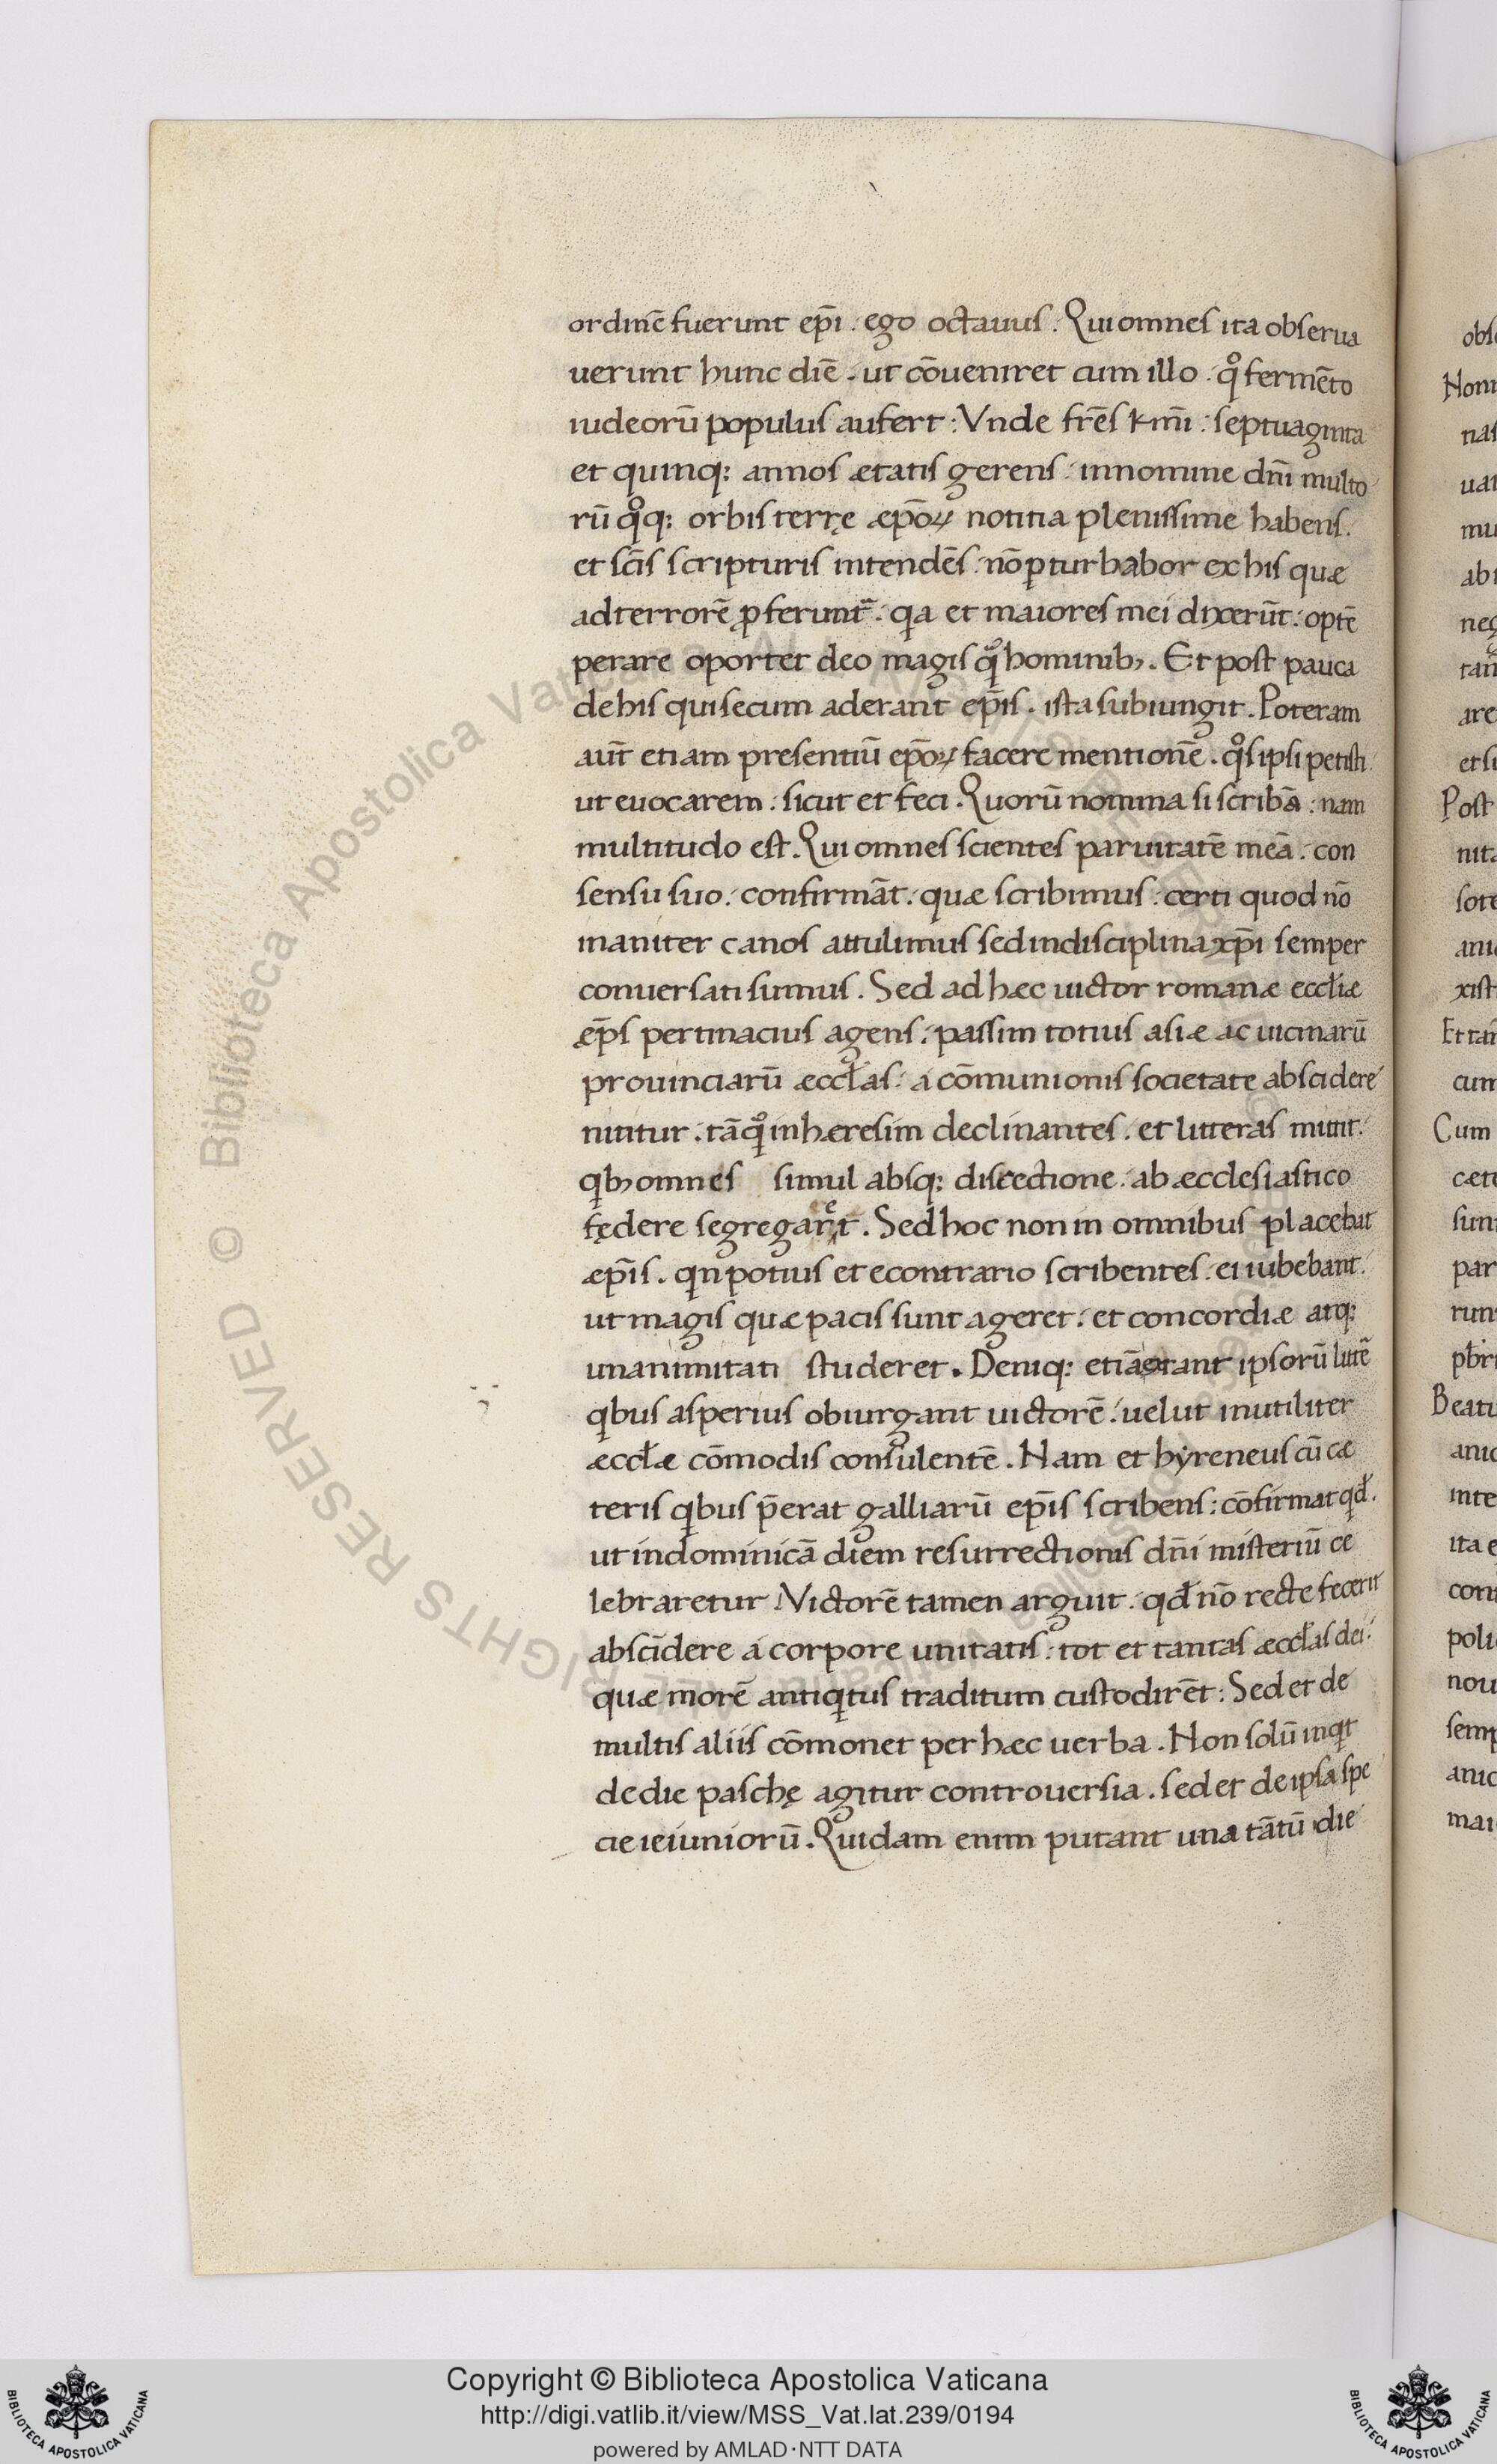 ordinē fuerunt ep̄i. ego octauus. Qui omnes ita obserua
uerunt hunc diē. ut cōueniret cum illo. qͦ fermēto
iudeorū populus aufert: Vnde fr̄es k̄mi. septuaginta
et quinq; annos ætatis gerens. in nomine dn̄i multo
rū qͦq; orbis terrę æpōꝝ notitia plenissime habens.
et sc̄is scripturis intendēs. nō ꝑturbabor ex his quæ
ad terrorē ꝓferunt᷑. qa et maiores mei dixerūt: optē
perare oportet deo magis qͣ hominibꝫ. Et post pauca
de his qui secum aderant ep̄is. ista subiungit. Poteram
aut̄ etiam presentiū epōꝝ facere mentionē. qͦs ipsi petisti.
ut euocarem. sicut et feci. Quorū nomina si scribā. nam
multitudo est. Qui omnes scientes paruitatē meā. con
sensu suo. confirmāt. quæ scribimus. certi quod nō
inaniter canos attulimus sed in disciplina xp̄i semper
conuersati sumus. Sed ad hæc uictor romanæ eccłiæ
æp̄s pertinacius agens. passim totius asiæ ac uicinarū
prouinciarū æccłas. a cōmunionis societate abscidere
nititur. tāqͣ in hæresim declinantes. et litteras mittit.
qbꝫ omnes simul absq; discectione. ab æcclesiastico
fędere segregarēt. Sed hoc non in omnibus placebat
æp̄is. qn potius et econtrario scribentes. ei iubebant.
ut magis quæ pacis sunt ageret. et concordiæ atq;
unanimitati studeret. Deniq; etiā extant ipsorū litt̄e
qbus asperius obiurgant uictorē. uelut inutiliter
æccłæ cōmodis consulentē. Nam et hyreneus cū cæ
teris qbus p̄erat galliarū ep̄is scribens: cōfirmat qđ.
ut in dominicā diem resurrectionis dn̄i misteriū ce
lebraretur. Victorē tamen arguit. qđ nō recte fecerit
abscidere a corpore unitatis. tot et tantas æccłas dei.
quæ morē antiqtus traditum custodirēt: Sed et de
multis aliis cōmonet per hæc uerba. Non solū inqt
de die paschę agitur controuersia. sed et de ipsa spe
cie ieiuniorū. Quidam enim putant una tātū die
Copyright © Biblioteca Apostolica Vaticana
http://digi.vatlib.it/view/MSS_Vat.lat.239/0194
powered by AMLAD·NTT DATA